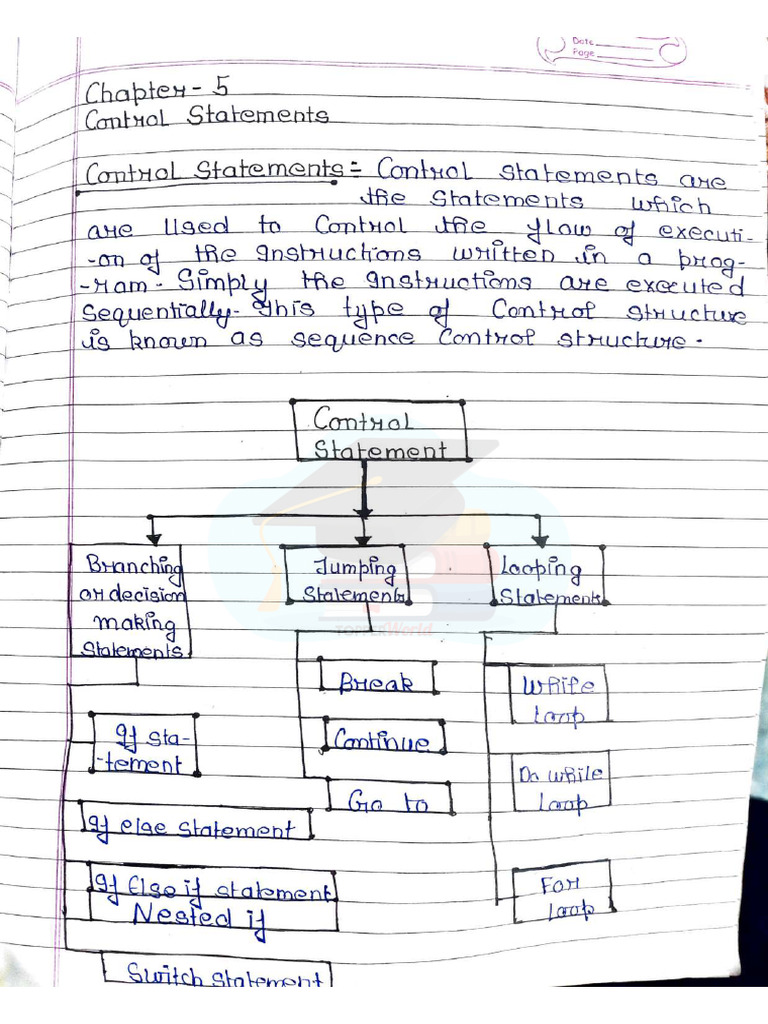 Date
Page
Chapter - 5
Control Statements
Control Statements := Control statements are
the statements which
are used to control the flow of executi-
-on of the Instructions written in a prog-
-ram. Simply the Instructions are executed
sequentially. This type of Control structure
is known as sequence control structure.
Control
Statement
Branching
or decision
making
Statements
Jumping
Statements
Looping
Statements
TOPPERWorld
Break
Continue
Go to
While
loop
Do while
loop
For
loop
If sta-
-tement
If else statement
If Else if statement
Nested if
Switch Statement